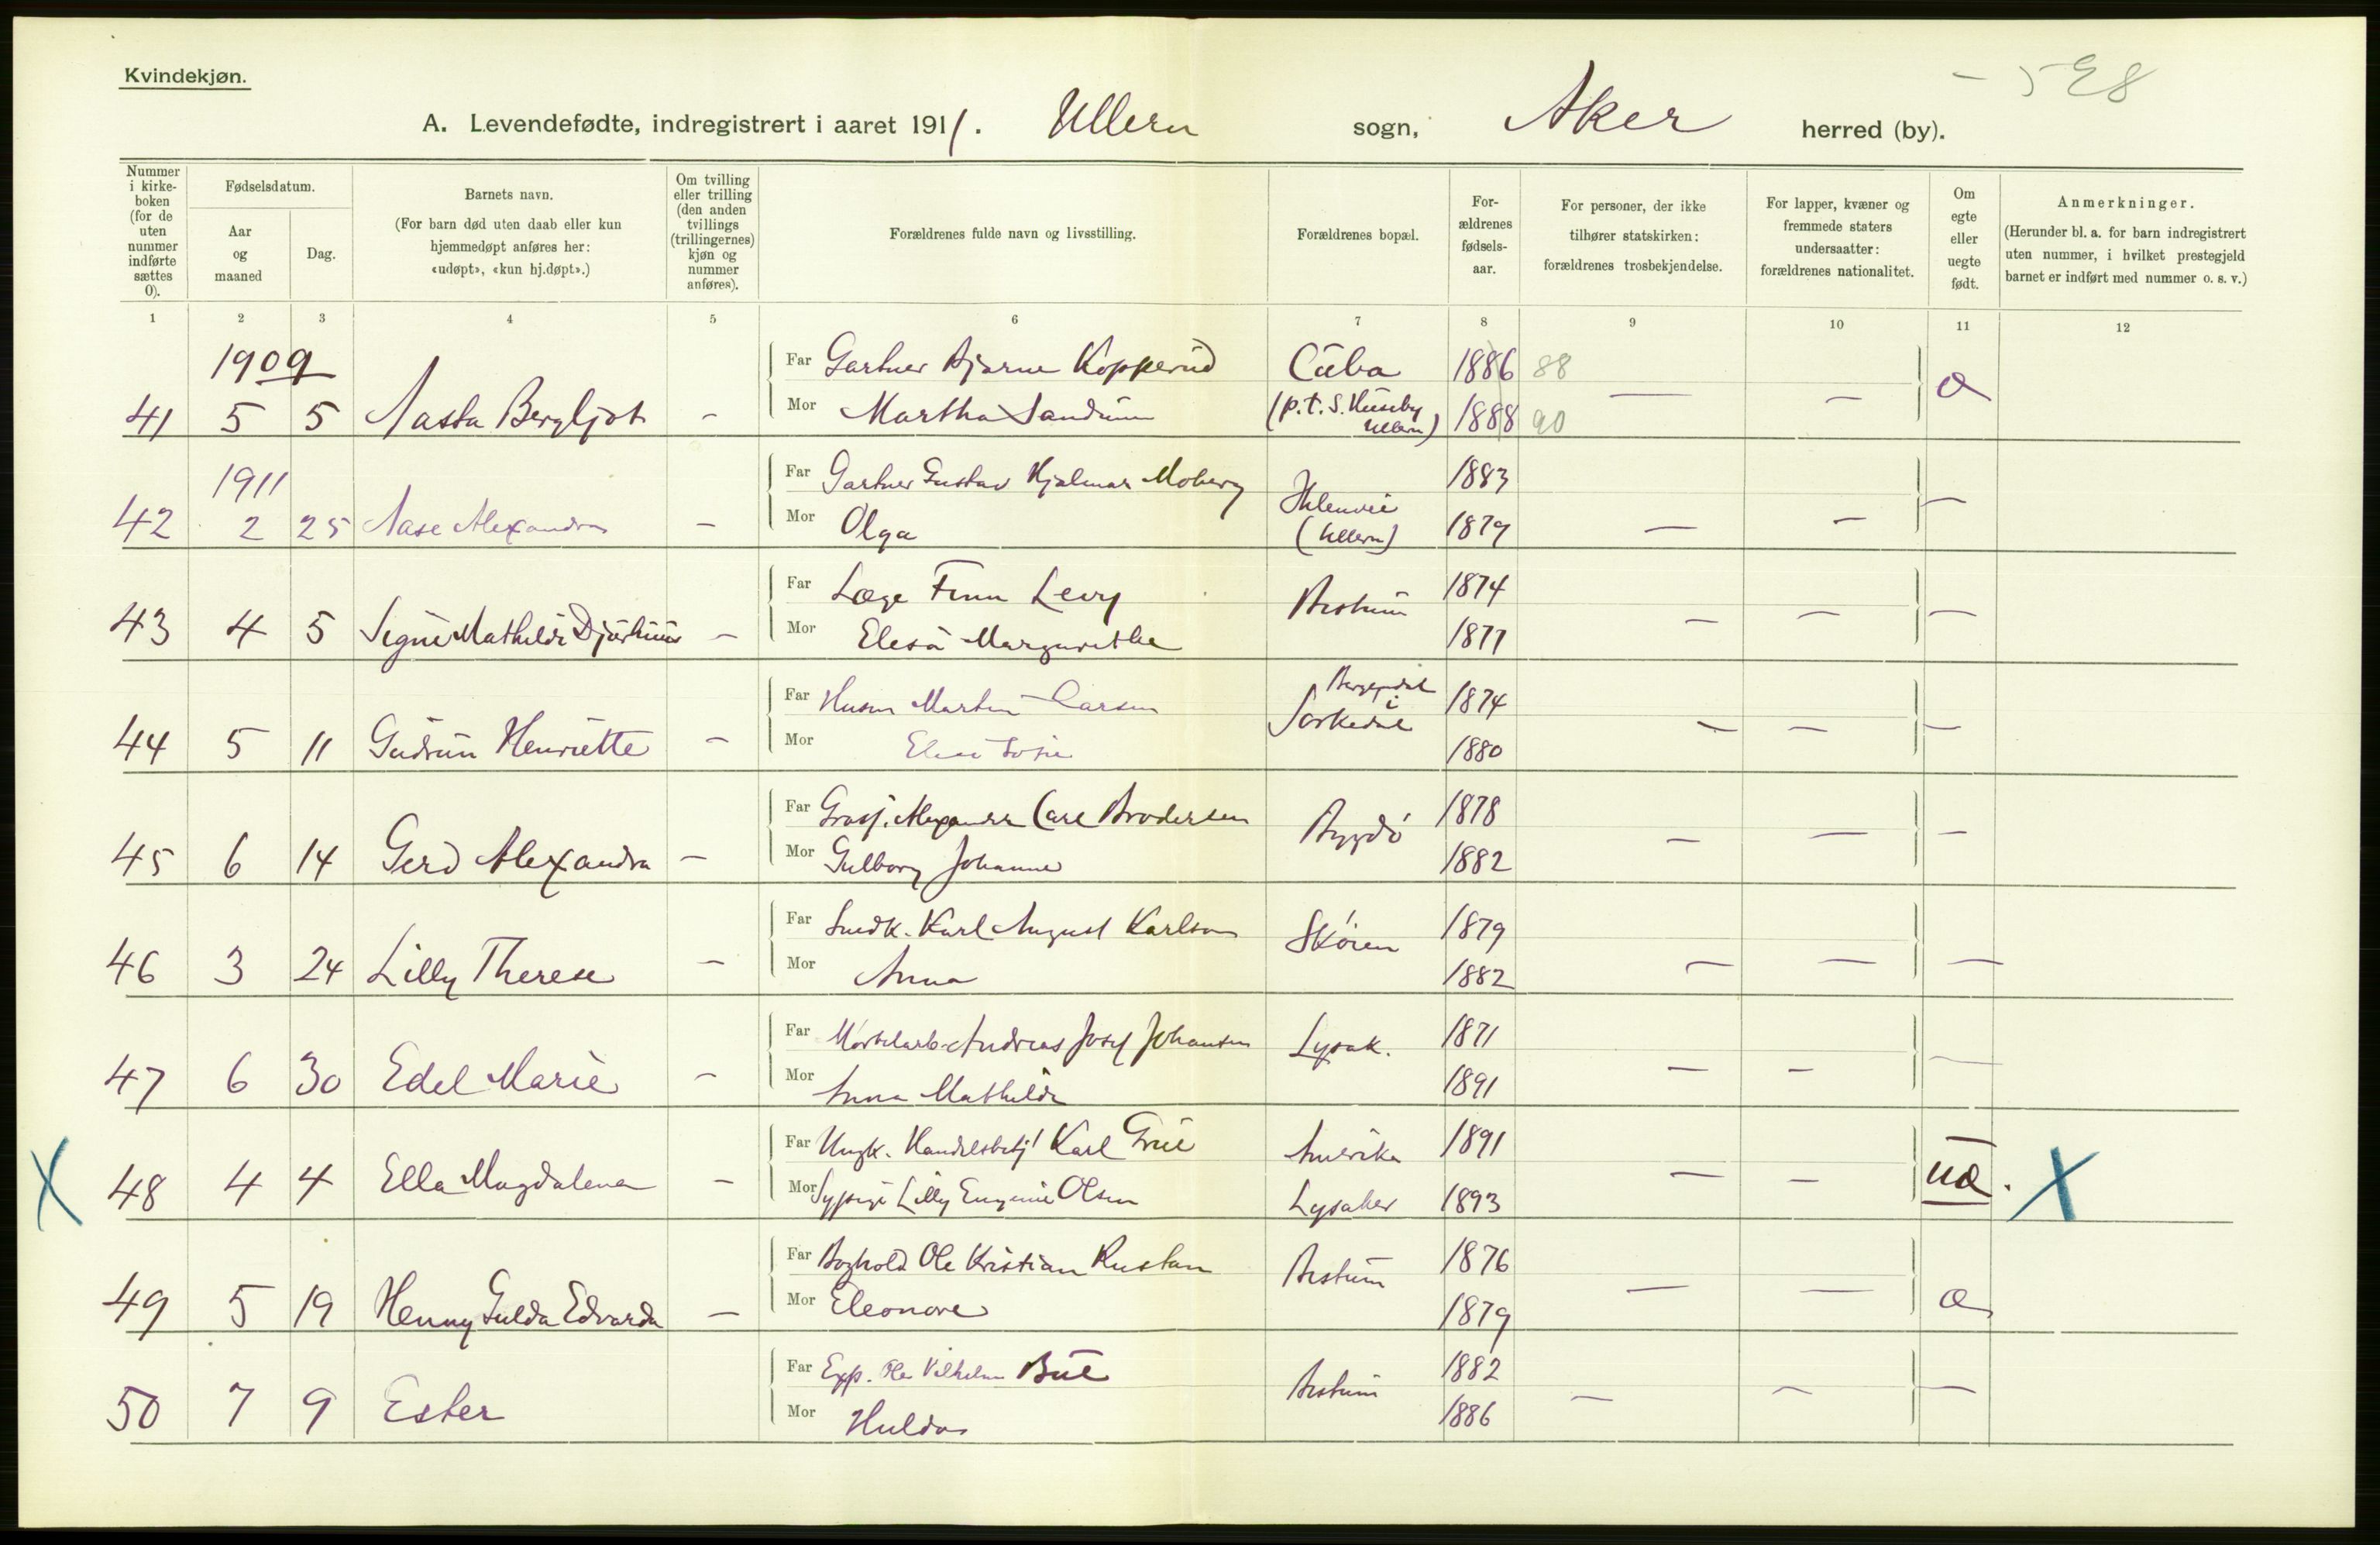 Kvindekjøn.
- 528
A. Levendefødte, indregistrert i aaret 1911. Ullern sogn, Aker herred (by).
Nummer i kirke-boken (for de uten nummer indførte sættes 0).
Fødselsdatum.
Aar og maaned
Dag.
Barnets navn.
(For barn død uten daab eller kun hjemmedøpt anføres her: «udøpt», «kun hj.døpt».)
Om tvilling eller trilling (den anden tvillings (trillingernes) kjøn og nummer anføres).
Forældrenes fulde navn og livsstilling.
Forældrenes bopæl.
For-ældrenes fødsels-aar.
For personer, der ikke tilhører statskirken: forældrenes trosbekjendelse.
For lapper, kvæner og fremmede staters undersaatter: forældrenes nationalitet.
Om egte eller uegte født.
Anmerkninger.
(Herunder bl. a. for barn indregistrert uten nummer, i hvilket prestegjeld barnet er indført med nummer o. s. v.)
1 2 3 4 5 6 7 8 9 10 11 12
1909 Far Gartner Bjarne Kopperud Cuba 1886 88
41 5 5 Aasta Bergljot - Mor Martha Sandum (p.t. S. Huseby Ullern) 1888 90 — — æ
1911 Far Gartner Gustav Hjalmar Moberg 1883
42 2 25 Aase Alexandra - Mor Olga (Ullern) 1879 — — —
Far Læge Finn Levy Bestum 1874
43 4 5 Signe Mathilde Djurhuus - Mor Elesa Margarethe 1877 — — —
Far Husm Martin Larsen i Sørkedal 1874
44 5 11 Gudrun Henriette - Mor Sofie 1880 — — —
Far Grossj. Alexander Carl Brodersen Bygdö 1878
45 6 14 Gerd Alexandra - Mor Gulborg Johanne 1882 — — —
Far Snedk. Karl August Karlson Skøien 1879
46 3 24 Lilly Therese - Mor Anna 1882 — — —
Far Mørtelarb. Andreas Josef Johansen Lysak. 1871
47 6 30 Edel Marie - Mor Anna Mathilde 1891 — — —
Far Ungk. Handelsbetj. Karl Grue Amerika 1891
X 48 4 4 Ella Magdalena - Mor Sypige Lilly Eugenie Olsen Lysaker 1893 — — uæ. X
Far Boghold Ole Kristian Rustan Bestum 1876
49 5 19 Henny Gulda Edvarda - Mor Eleonore 1879 — — æ
Far Exp. Ole Vilhelm Bue Bestum 1882
50 7 9 Ester Mor Hulda 1886 — — —